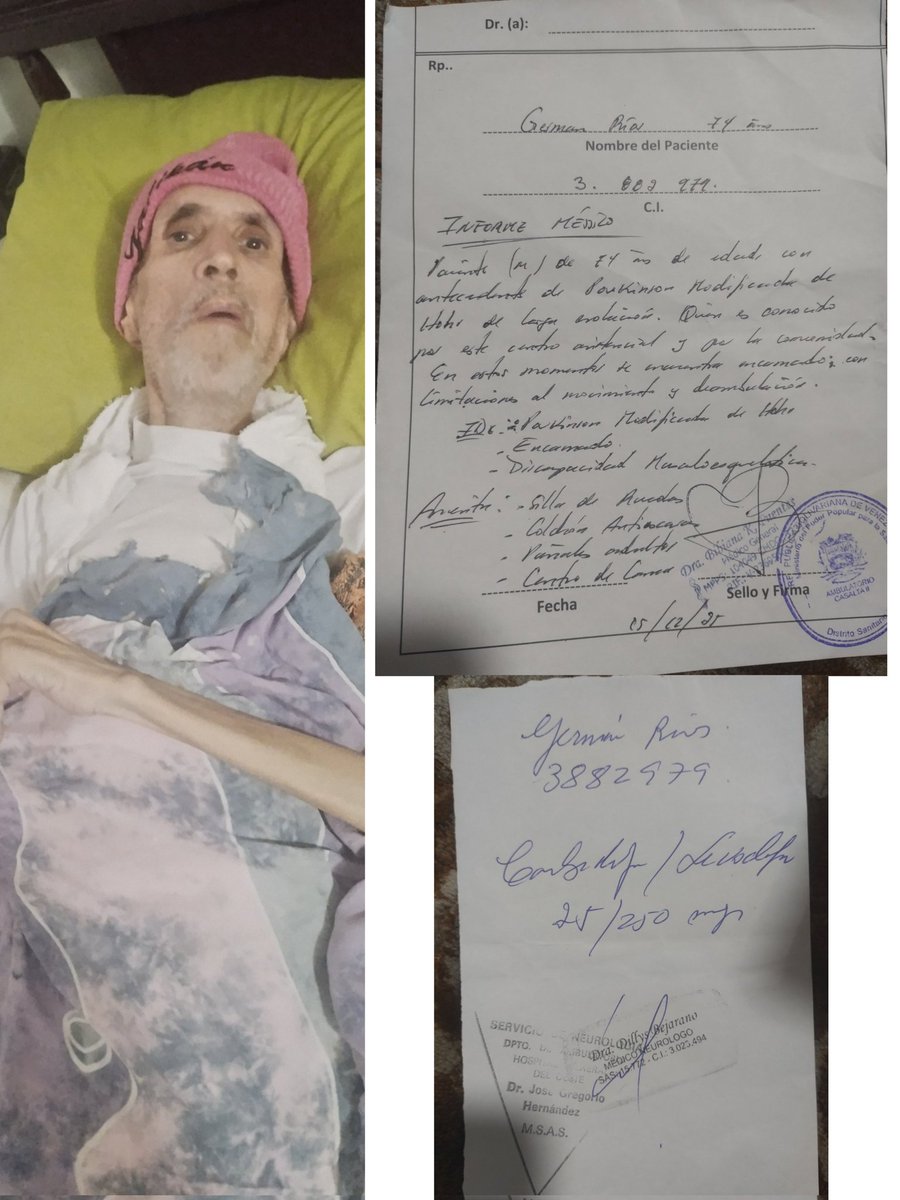 Dr. (a):
Rp..
German Ríos 74 años
Nombre del Paciente
3. 882 979.
C.I.
INFORME MÉDICO
Paciente (m) de 74 años de edad con
antecedente de Parkinson Modificada de
Hohr de larga evolución. Quien es conocido
por este centro asistencial y por la comunidad.
En estos momentos se encuentra encamado; con
limitaciones al movimiento y deambulación.
IDx: Parkinson Modificada de Hohr
- Encamado.
- Discapacidad Musculoesquelética.
Amerita: - Silla de Ruedas
- Colchón Antiescaras
- Pañales adultos
- Centro de Cama
Dra. Bibiana R.
Médico General
REPÚBLICA BOLIVARIANA DE VENEZ
Ministerio del Poder Popular para la S
AMBULATORIO
CASALTA II
Distrito Sanitario
Fecha
Sello y Firma
25/12/25
Germán Ríos.
3882979
Carbidopa / Levodopa
25/250 mgs
SERVICIO DE NEUROLOGÍA
DPTO. DE
HOSPITAL GENERAL
DEL OESTE
Dr. José Gregorio
Hernández
M.S.A.S.
Dra. Dillys Bejarano
MÉDICO NEURÓLOGO
SAS: 15.172 - C.I.: 3.025.494